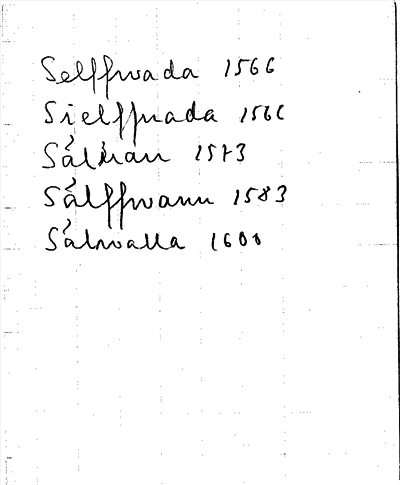 Selffwada 1566
Sielffuada 1566
Sáluan 1573
Sálffwann 1583
Sálwalla 1600